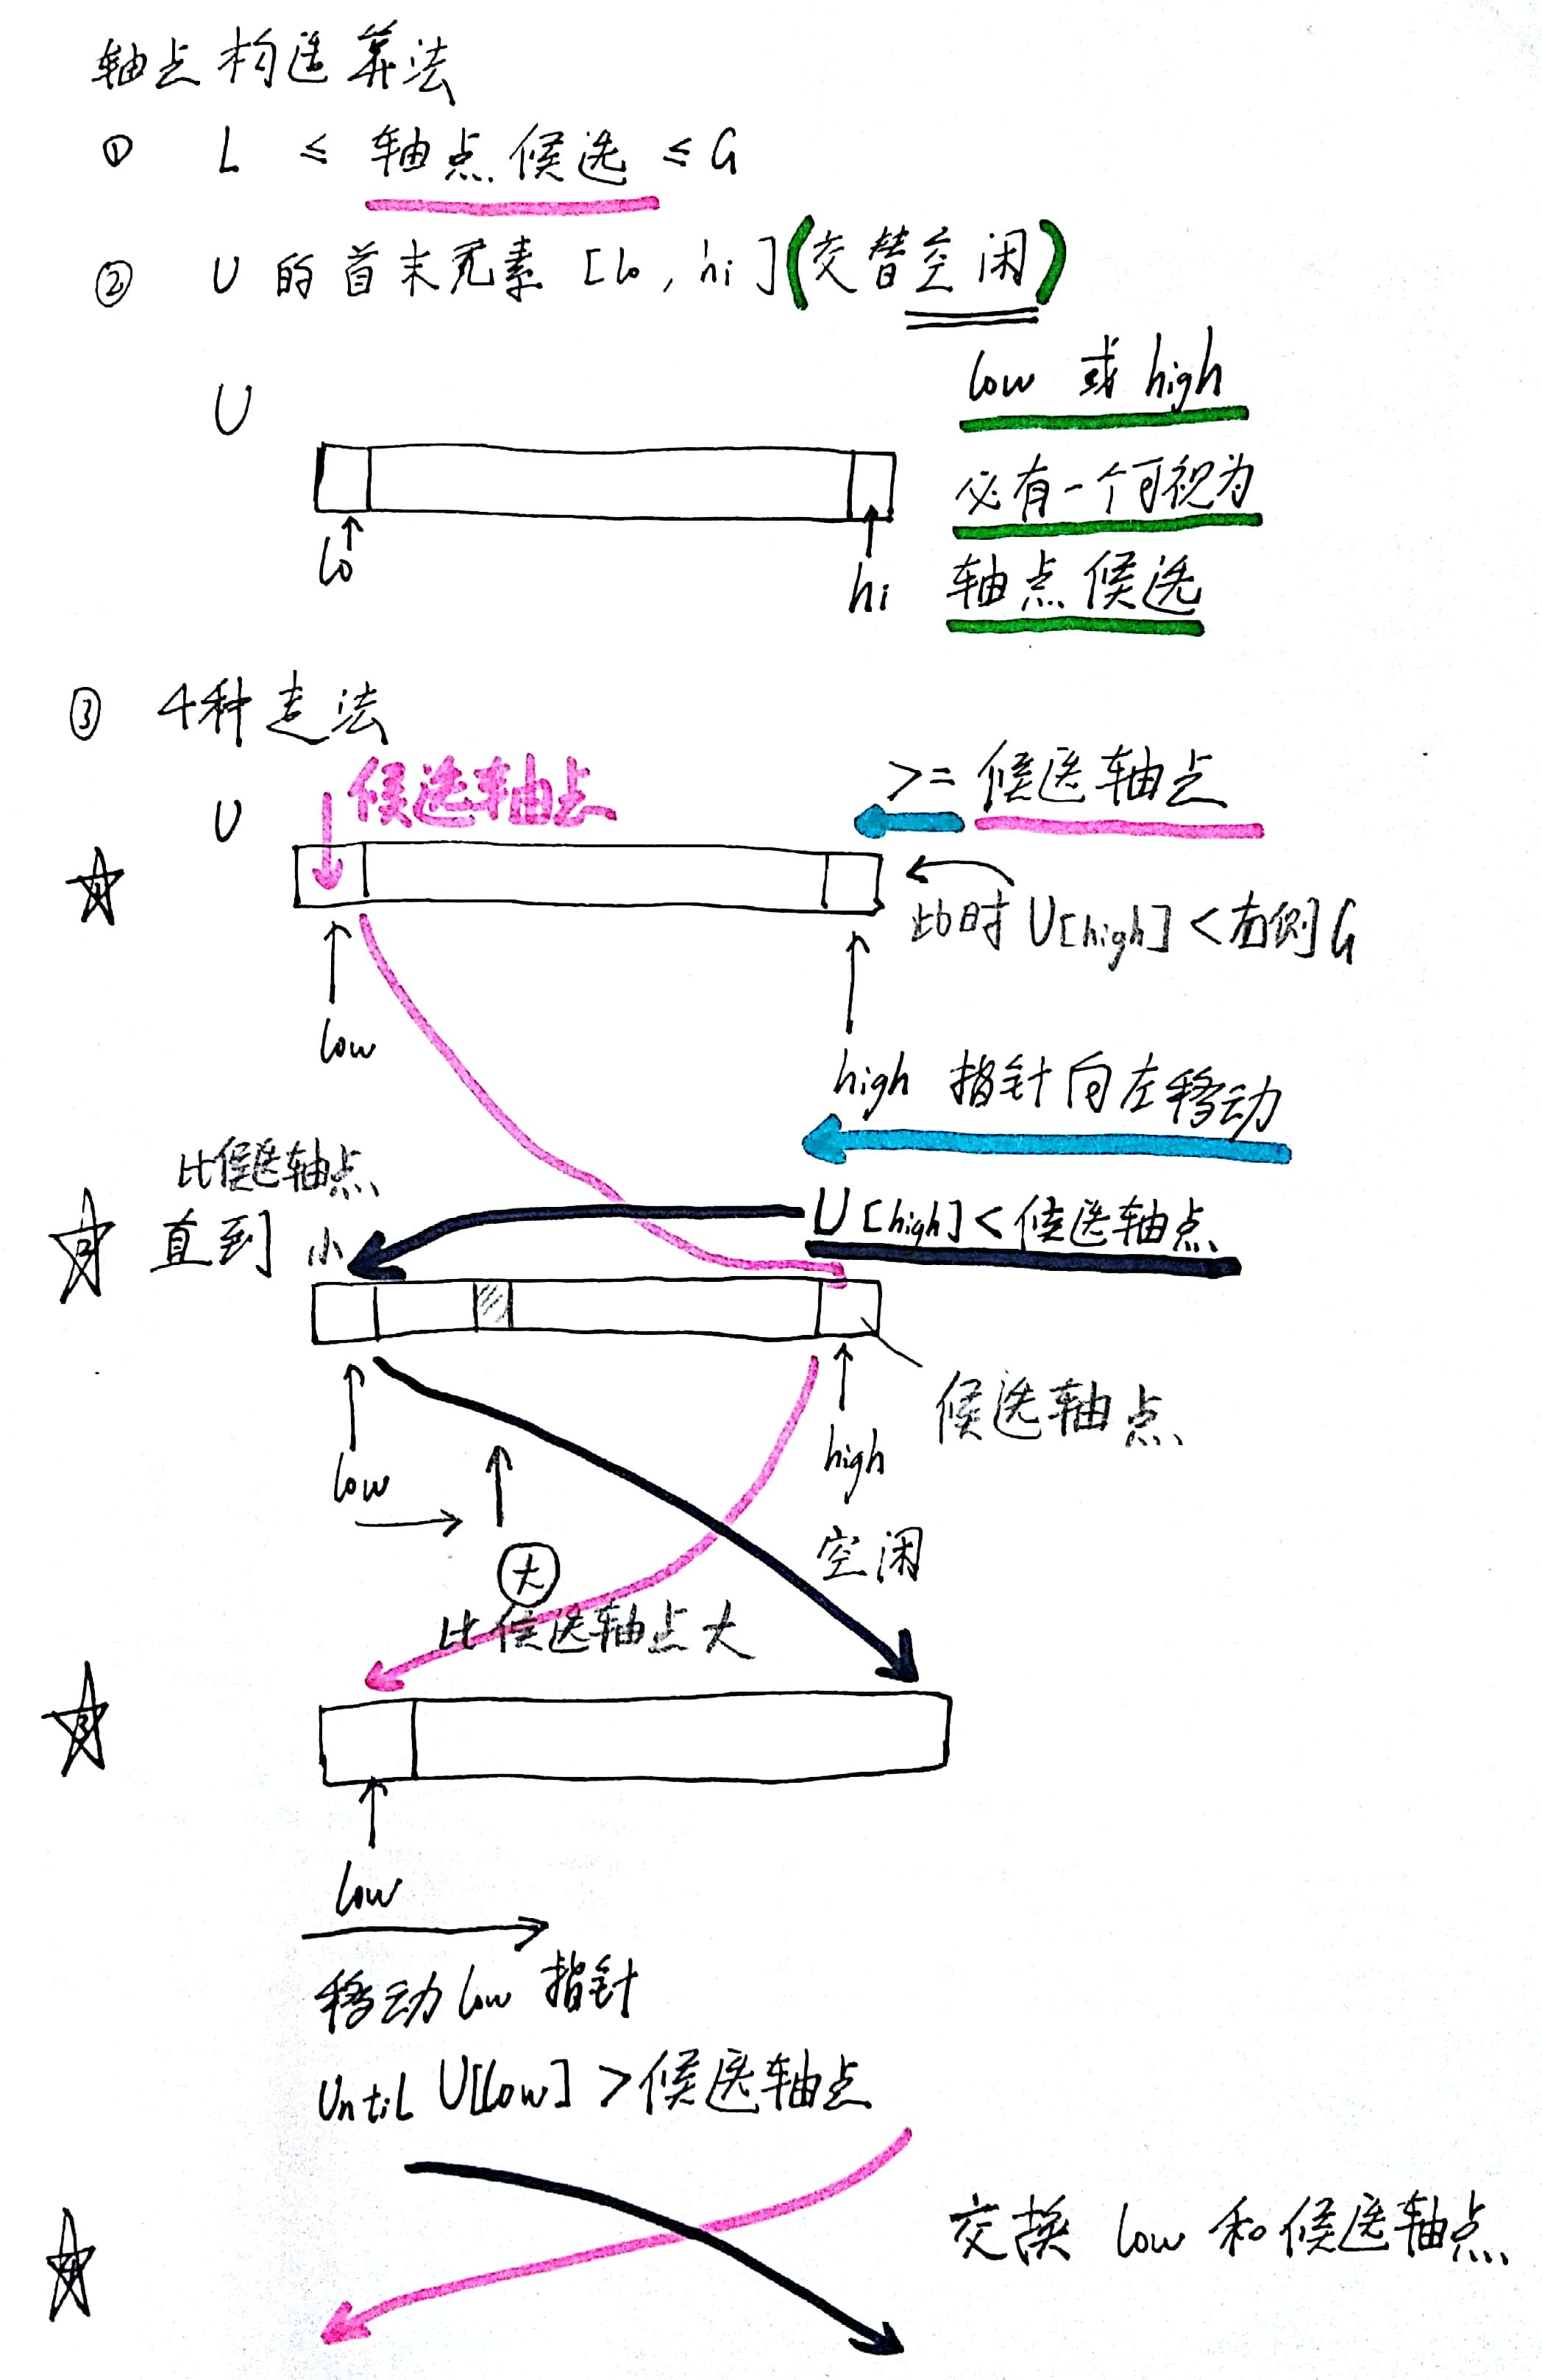 轴点构造算法
① L ≤ 轴点候选 ≤ G
② U 的首末元素 [lo, hi] (交替空闲)
low 或 high
U
必有一个可视为
lo
hi
轴点候选
③ 4种走法
候选轴点
>= 候选轴点
U
1
此时 U[high] < 右侧G
low
high 指针向左移动
比候选轴点
2
直到 小
U[high] < 候选轴点
候选轴点
low
high
空闲
大
比候选轴点大
3
low
移动 low 指针
Until U[low] > 候选轴点
4
交换 low 和候选轴点